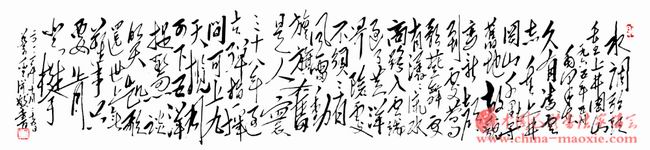 水调歌头
重上井冈山
一九六五年五月
久有凌云
志重上井
冈山千里来寻
故地旧貌
变新颜
到处莺
歌燕舞更
有潺潺流水
高路入云端
过了黄洋
界险处
不须看
风雷动
旌旗奋
是人寰
三十八年过
去弹指一挥
间可上九
天揽月
可下五洋
捉鳖谈
笑凯歌
还世上无
难事只
要肯
登攀